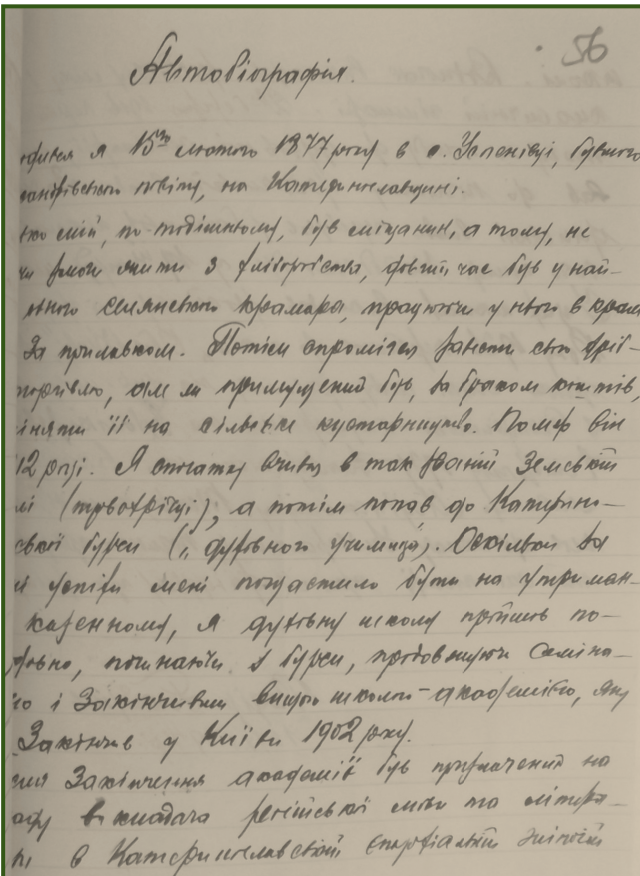 56
Автобіографія.
я 15го лютого 1877 року в с. Зеленівці, бувшого
повіту, на Катеринославщині.
мій, по тодішньому, був міщанин, а тому, не
жити з хліборобства, довгий час був у най-
селянського крамаря, працюючи у нього в крам
За прилавком. Потім спромігся завести свою дріб-
торгівлю, але примушений був, за браком коштів,
її на сільське кустарництво. Помер він
12 році. Я спочатку вчився в так званій Земській
(трьохрічці), а потім попав до Катерино-
бурси („духовного училища"). Оскільки за
успіхи мені пощастило бути на утриман-
казенному, я духовну школу пройшов по-
починаючи з бурси, продовжуючи Семіна-
і Закінчивши вищою школою-академією, яку
Закінчив у Київі 1902 року.
Закінчення академії був призначений на
викладача російської мови та літера-
в Катеринославській Єпархіяльній жіночій